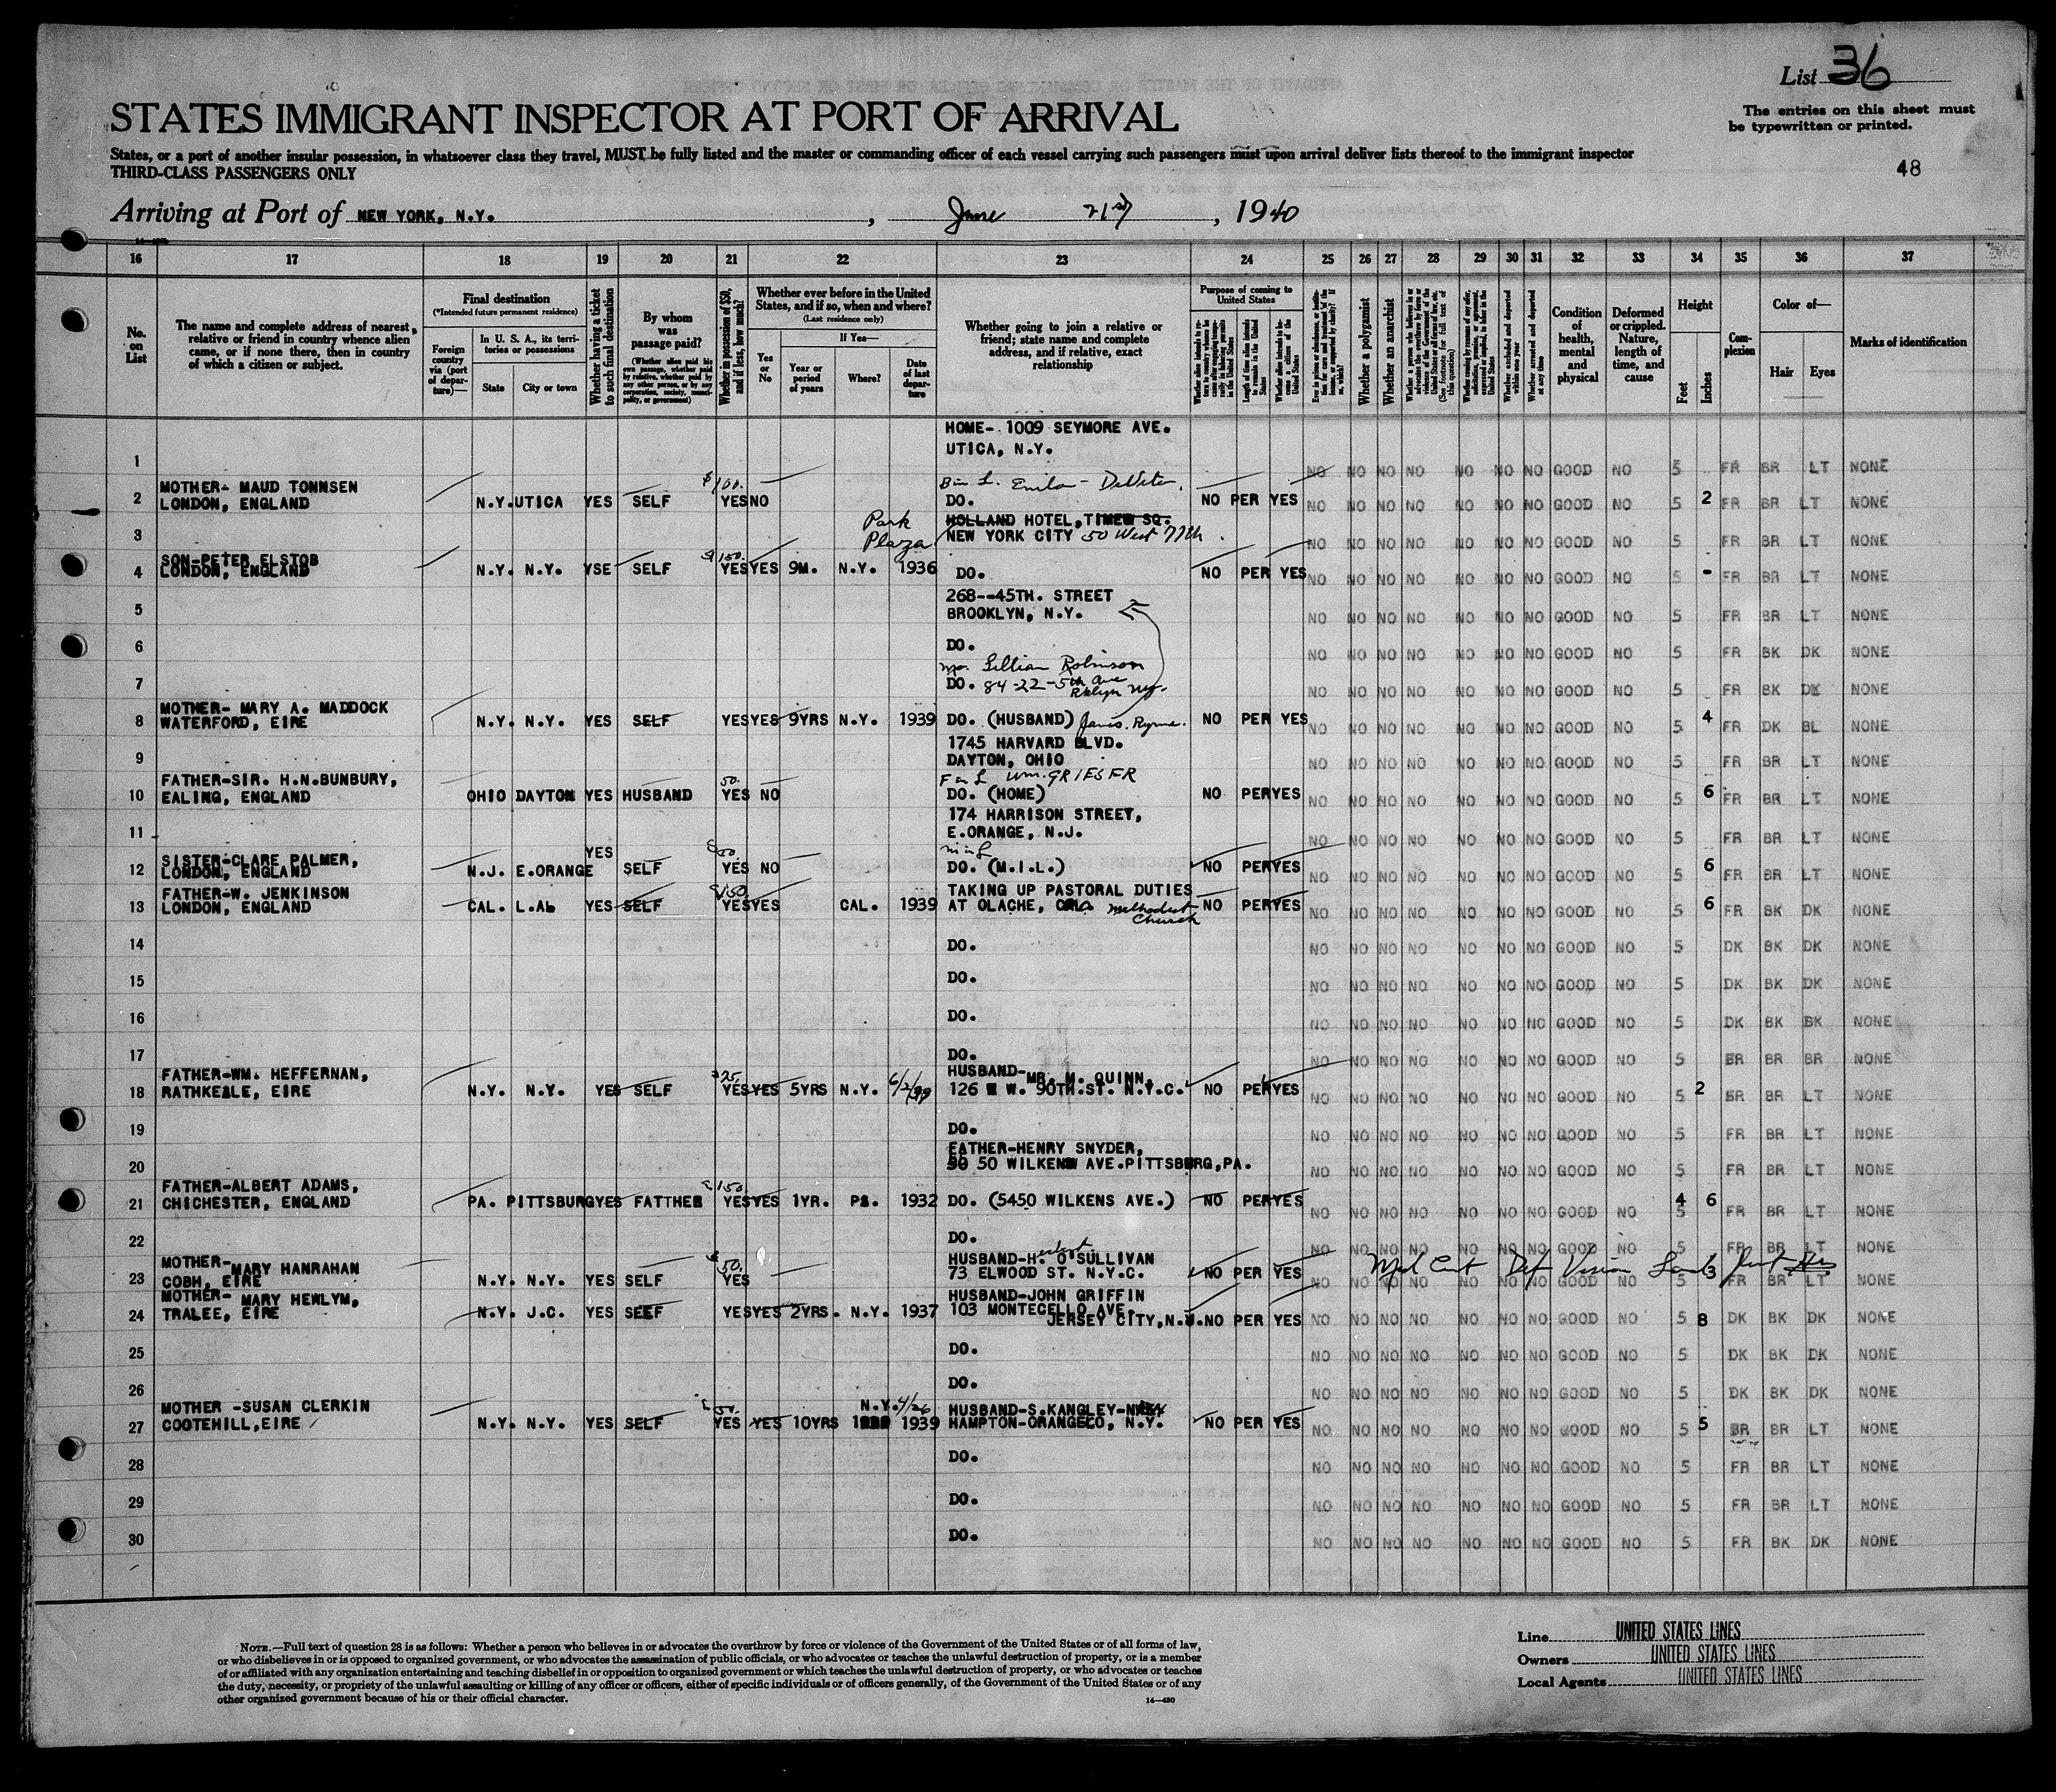 List 36
STATES IMMIGRANT INSPECTOR AT PORT OF ARRIVAL
The entries on this sheet must
be typewritten or printed.
States, or a port of another insular possession, in whatsoever class they travel, MUST be fully listed and the master or commanding officer of each vessel carrying such passengers must upon arrival deliver lists thereof to the immigrant inspector
THIRD-CLASS PASSENGERS ONLY
48
Arriving at Port of NEW YORK, N.Y. , June 21st , 1940
16 17 18 19 20 21 22 23 24 25 26 27 28 29 30 31 32 33 34 35 36 37
No. on List
The name and complete address of nearest relative or friend in country whence alien came, or if none there, then in country of which a citizen or subject.
Final destination
(*Intended future permanent residence)
Foreign country via (port of departure)—
In U. S. A., its territories or possessions
State
City or town
Whether having a ticket to such final destination
By whom was passage paid?
(Whether alien paid his own passage, whether paid by relative, whether paid by any other person, or by any corporation, society, municipality, or government)
Whether in possession of $50, and if less, how much?
Whether ever before in the United States, and if so, when and where?
(Last residence only)
Yes or No
If Yes—
Year or period of years
Where?
Date of last departure
Whether going to join a relative or friend; state name and complete address, and if relative, exact relationship
Purpose of coming to United States
Whether a polygamist
Whether an anarchist
Condition of health, mental and physical
Deformed or crippled. Nature, length of time, and cause
Height
Feet
Inches
Complexion
Color of—
Hair
Eyes
Marks of identification
HOME- 1009 SEYMORE AVE.
UTICA, N.Y.
1 NO NO NO NO NO NO NO GOOD NO 5 FR BR LT NONE
MOTHER- MAUD TONNSEN
2 LONDON, ENGLAND N.Y. UTICA YES SELF $100. YES NO DO. NO PER YES NO NO NO NO NO NO NO GOOD NO 5 2 FR BR LT NONE
Park Plaza HOLLAND HOTEL, TIMES SQ.
3 NEW YORK CITY 50 West 77th NO NO NO NO NO NO NO GOOD NO 5 FR BR LT NONE
SON-PETER ELSTOB
4 LONDON, ENGLAND N.Y. N.Y. YSE SELF $150. YES YES 9M. N.Y. 1936 DO. NO PER YES NO NO NO NO NO NO NO GOOD NO 5 - FR BR LT NONE
268--45TH. STREET
5 BROOKLYN, N.Y. NO NO NO NO NO NO NO GOOD NO 5 FR BR LT NONE
6 DO. NO NO NO NO NO NO NO GOOD NO 5 FR BK DK NONE
Lillian Robinson
7 DO. 84-22-5th Ave NO NO NO NO NO NO NO GOOD NO 5 FR BK DK NONE
MOTHER- MARY A. MADDOCK
8 WATERFORD, EIRE N.Y. N.Y. YES SELF YES YES 9YRS N.Y. 1939 DO. (HUSBAND) NO PER YES NO NO NO NO NO NO NO GOOD NO 5 4 FR DK BL NONE
1745 HARVARD BLVD.
9 DAYTON, OHIO NO NO NO NO NO NO NO GOOD NO 5 FR BR LT NONE
FATHER-SIR. H.N.BUNBURY, F in L Wm. GRIESER
10 EALING, ENGLAND OHIO DAYTON YES HUSBAND 50. YES NO DO. (HOME) NO PER YES NO NO NO NO NO NO NO GOOD NO 5 6 FR BR LT NONE
174 HARRISON STREET,
11 E.ORANGE, N.J. NO NO NO NO NO NO NO GOOD NO 5 FR BR LT NONE
SISTER-CLARE PALMER, M in L
12 LONDON, ENGLAND N.J. E.ORANGE YES SELF YES NO DO. (M.I.L.) NO PER YES NO NO NO NO NO NO NO GOOD NO 5 6 FR BR LT NONE
FATHER-W. JENKINSON $150. TAKING UP PASTORAL DUTIES
13 LONDON, ENGLAND CAL. L.A. YES SELF YES YES CAL. 1939 AT OLACHE, Methodist Church NO PER YES NO NO NO NO NO NO NO GOOD NO 5 6 FR BK DK NONE
14 DO. NO NO NO NO NO NO NO GOOD NO 5 DK BK DK NONE
15 DO. NO NO NO NO NO NO NO GOOD NO 5 DK BK DK NONE
16 DO. NO NO NO NO NO NO NO GOOD NO 5 DK BK BK NONE
17 DO. NO NO NO NO NO NO NO GOOD NO 5 BR BR BR NONE
FATHER-WM. HEFFERNAN, HUSBAND-MR. M. QUINN,
18 RATHKEALE, EIRE N.Y. N.Y. YES SELF $25. YES YES 5YRS N.Y. 126 W. 90TH.ST. N.Y.C. NO PER YES NO NO NO NO NO NO NO GOOD NO 5 2 BR BR LT NONE
19 DO. NO NO NO NO NO NO NO GOOD NO 5 FR BR LT NONE
FATHER-HENRY SNYDER,
20 50 WILKENS AVE.PITTSBURG,PA. NO NO NO NO NO NO NO GOOD NO 5 FR BR LT NONE
FATHER-ALBERT ADAMS,
21 CHICHESTER, ENGLAND PA. PITTSBURG YES FATTHER 150. YES YES 1YR. PA. 1932 DO. (5450 WILKENS AVE.) NO PER YES NO NO NO NO NO NO NO GOOD NO 4 5 6 FR BR LT NONE
22 DO. NO NO NO NO NO NO NO GOOD NO 5 FR BR LT NONE
MOTHER-MARY HANRAHAN HUSBAND-Herbert O'SULLIVAN
23 COBH, EIRE N.Y. N.Y. YES SELF $50. YES 73 ELWOOD ST. N.Y.C. NO PER YES Med Cert Def Vision NO NO NO NO NO NO NO GOOD NO 5 3 FR BR LT NONE
MOTHER- MARY HEWLYM, HUSBAND-JOHN GRIFFIN
24 TRALEE, EIRE N.Y. J.C. YES SELF YES YES 2YRS. N.Y. 1937 103 MONTECELLO AVE. JERSEY CITY,N.J. NO PER YES NO NO NO NO NO NO NO GOOD NO 5 8 DK BK DK NONE
25 DO. NO NO NO NO NO NO NO GOOD NO 5 DK BK DK NONE
26 DO. NO NO NO NO NO NO NO GOOD NO 5 DK BK DK NONE
MOTHER -SUSAN CLERKIN N.Y. 4/26 HUSBAND-S.KANGLEY-
27 COOTEHILL,EIRE N.Y. N.Y. YES SELF YES YES 10YRS 1939 HAMPTON-ORANGECO, N.Y. NO PER YES NO NO NO NO NO NO NO GOOD NO 5 5 BR BR LT NONE
28 DO. NO NO NO NO NO NO NO GOOD NO 5 FR BR LT NONE
29 DO. NO NO NO NO NO NO NO GOOD NO 5 FR BR LT NONE
30 DO. NO NO NO NO NO NO NO GOOD NO 5 FR BK DK NONE
NOTE.—Full text of question 28 is as follows: Whether a person who believes in or advocates the overthrow by force or violence of the Government of the United States or of all forms of law,
or who disbelieves in or is opposed to organized government, or who advocates the assassination of public officials, or who advocates or teaches the unlawful destruction of property, or is a member
of or affiliated with any organization entertaining and teaching disbelief in or opposition to organized government or which teaches the unlawful destruction of property, or who advocates or teaches
the duty, necessity, or propriety of the unlawful assaulting or killing of any officer or officers, either of specific individuals or of officers generally, of the Government of the United States or of any
other organized government because of his or their official character.
14—430
Line UNITED STATES LINES
Owners UNITED STATES LINES
Local Agents UNITED STATES LINES